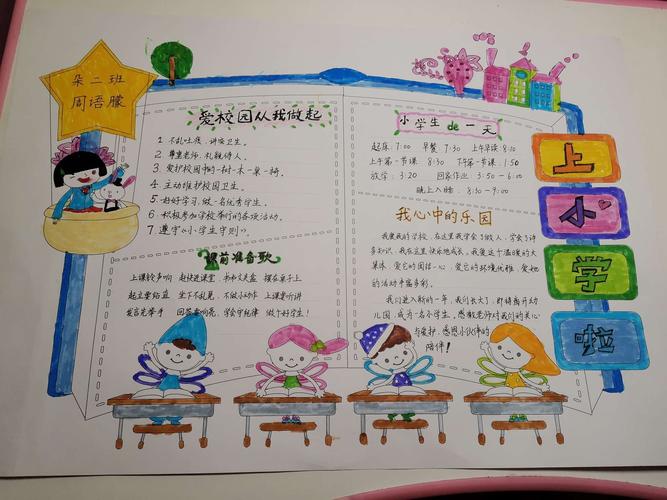 朵二班
周语朦
爱校园从我做起
1. 不乱吐痰，讲究卫生。
2. 尊重老师，礼貌待人。
3. 爱护校园中的一树一木一桌一椅。
4. 主动维护校园卫生。
5. 好好学习，做一名优秀学生。
6. 积极参加学校举行的各项活动。
7. 遵守《小学生守则》。
课前准备歌
上课铃声响 赶快进课堂 书本文具盒 摆在桌子上
起立要站直 坐下不乱晃 不做小动作 上课要听讲
发言先举手 回答要响亮 学会守规律 做个好学生！
小学生de一天
起床：7:00 早餐：7:30 上午早读：8:10
上午第一节课：8:30 下午第一节课：1:50
放学：3:20 回家作业：3:50－6:00
晚上入睡：8:30－9:00
我心中的乐园
我爱我的学校，在这里我学会了做人，学会了许
多知识，我在这里快乐地成长。我爱这个温暖的大
集体，爱它的团结一心，爱它的环境优雅，爱她
的活动丰富多彩。
我们进入新的一年，我们长大了，即将离开幼
儿园，成为一名小学生，感教老师对我们的关心
与爱护，感恩小伙伴的
陪伴！
上
小
学
啦